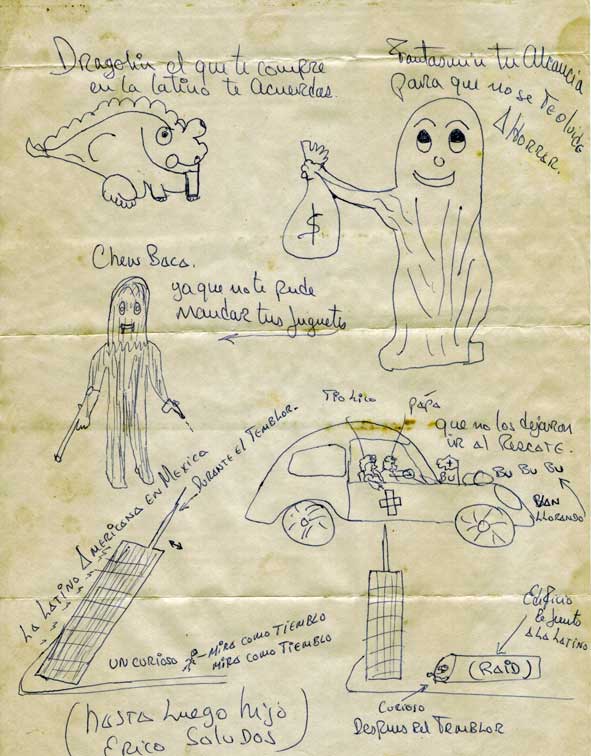 Dragolin el que te compre
en la Latino te Acuerdas.
Fantasmin tu Alcancia
para que no se te olvide
AHorrar.
$
Chew Baca.
ya que no te pude
Mandar tus Juguetes
Tio Kiko
PAPA
que no los dejaran
IR al RESCATE.
BU
BU BU BU
IBAN
LLORANDO
LA LATINO AMERICANA EN MEXICO
DURANTE EL TEMBLOR.
UN CURIOSO
MIRA COMO TIEMBLO
MIRA COMO TIEMBLO
Edificio
Junto
A LA LATINO
(RAID)
CURIOSO
DESPUES DEL TEMBLOR
(HASTA Luego Hijo
ERICO SALUDOS)